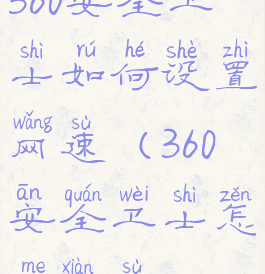 360安全卫
shì rú hé shè zhì
士如何设置
wǎng sù
网速（360
ān quán wèi shì zěn
安全卫士怎
me xiàn sù